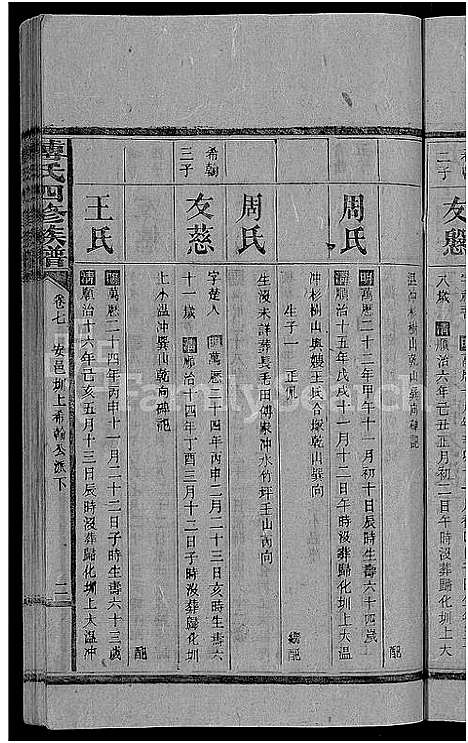 希
二子
友慇
八歲 清順治六年己丑正月初二日午時沒葬歸化圳上大
溫冲杉樹山乾山巽向碑記
配
周氏
明萬厯二十二年甲午十一月初十日辰時生壽六十四歲
清順治十五年戊戌十一月十二日午時沒葬歸化圳上大溫
冲杉樹山與嫂王氏合塚乾山巽向
生子一 正
續配
周氏
生沒未詳葬長毛田傅家冲水竹坪壬山丙向
希翰
三子
友慈
字楚人 明萬厯二十四年丙申二月二十三日亥時生壽六
十二歲 清順治十四年丁酉三月十二日子時沒葬歸化圳
上木溫冲巽山乾向碑記
配
王氏
明萬厯二十四年丙申十一月二十二日子時生壽六十三歲
清順治十六年己亥五月十三日辰時沒葬歸化圳上大溫冲
氏四修族譜
卷七
安邑圳上希翰公派下
二
FamilySearch